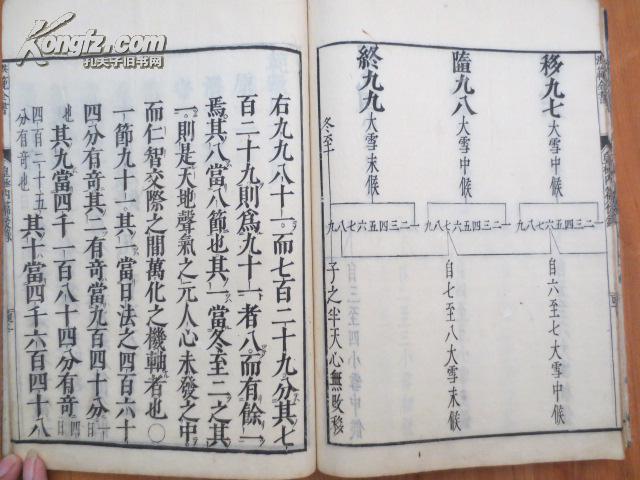 Kongfz.com
孔夫子旧书网
移九七大雪中候
一二三四五六七八九
自六至七大雪中候
隨九八大雪中候
一二三四五六七八九
自七至八大雪末候
終九九大雪末候
一二三四五六七八九
冬至
子之半天心無改移
右九九八十一而七百二十九分其七
百二十九則爲九十一者八而有餘一
焉其八當八節也其一當冬至二之其
一則是天地聲氣之元人心未發之中
而仁智交際之間萬化之機軸者也〇
一節九十一其一當日法之四百六十
四分有奇其二有奇當九百四十分日
也其九當四千一百八十四分有奇日
四百二十五分有奇也其十當四千六百四十八